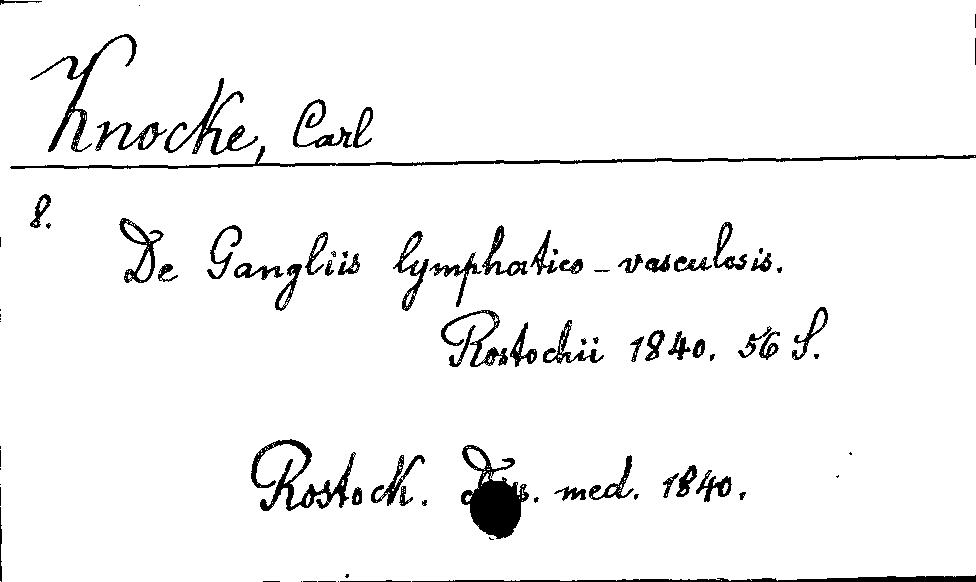 Knocke, Carl
8.
De Gangliis lymphatico-vasculosis.
Rostochii 1840. 56 S.
Rostock. med. 1840.